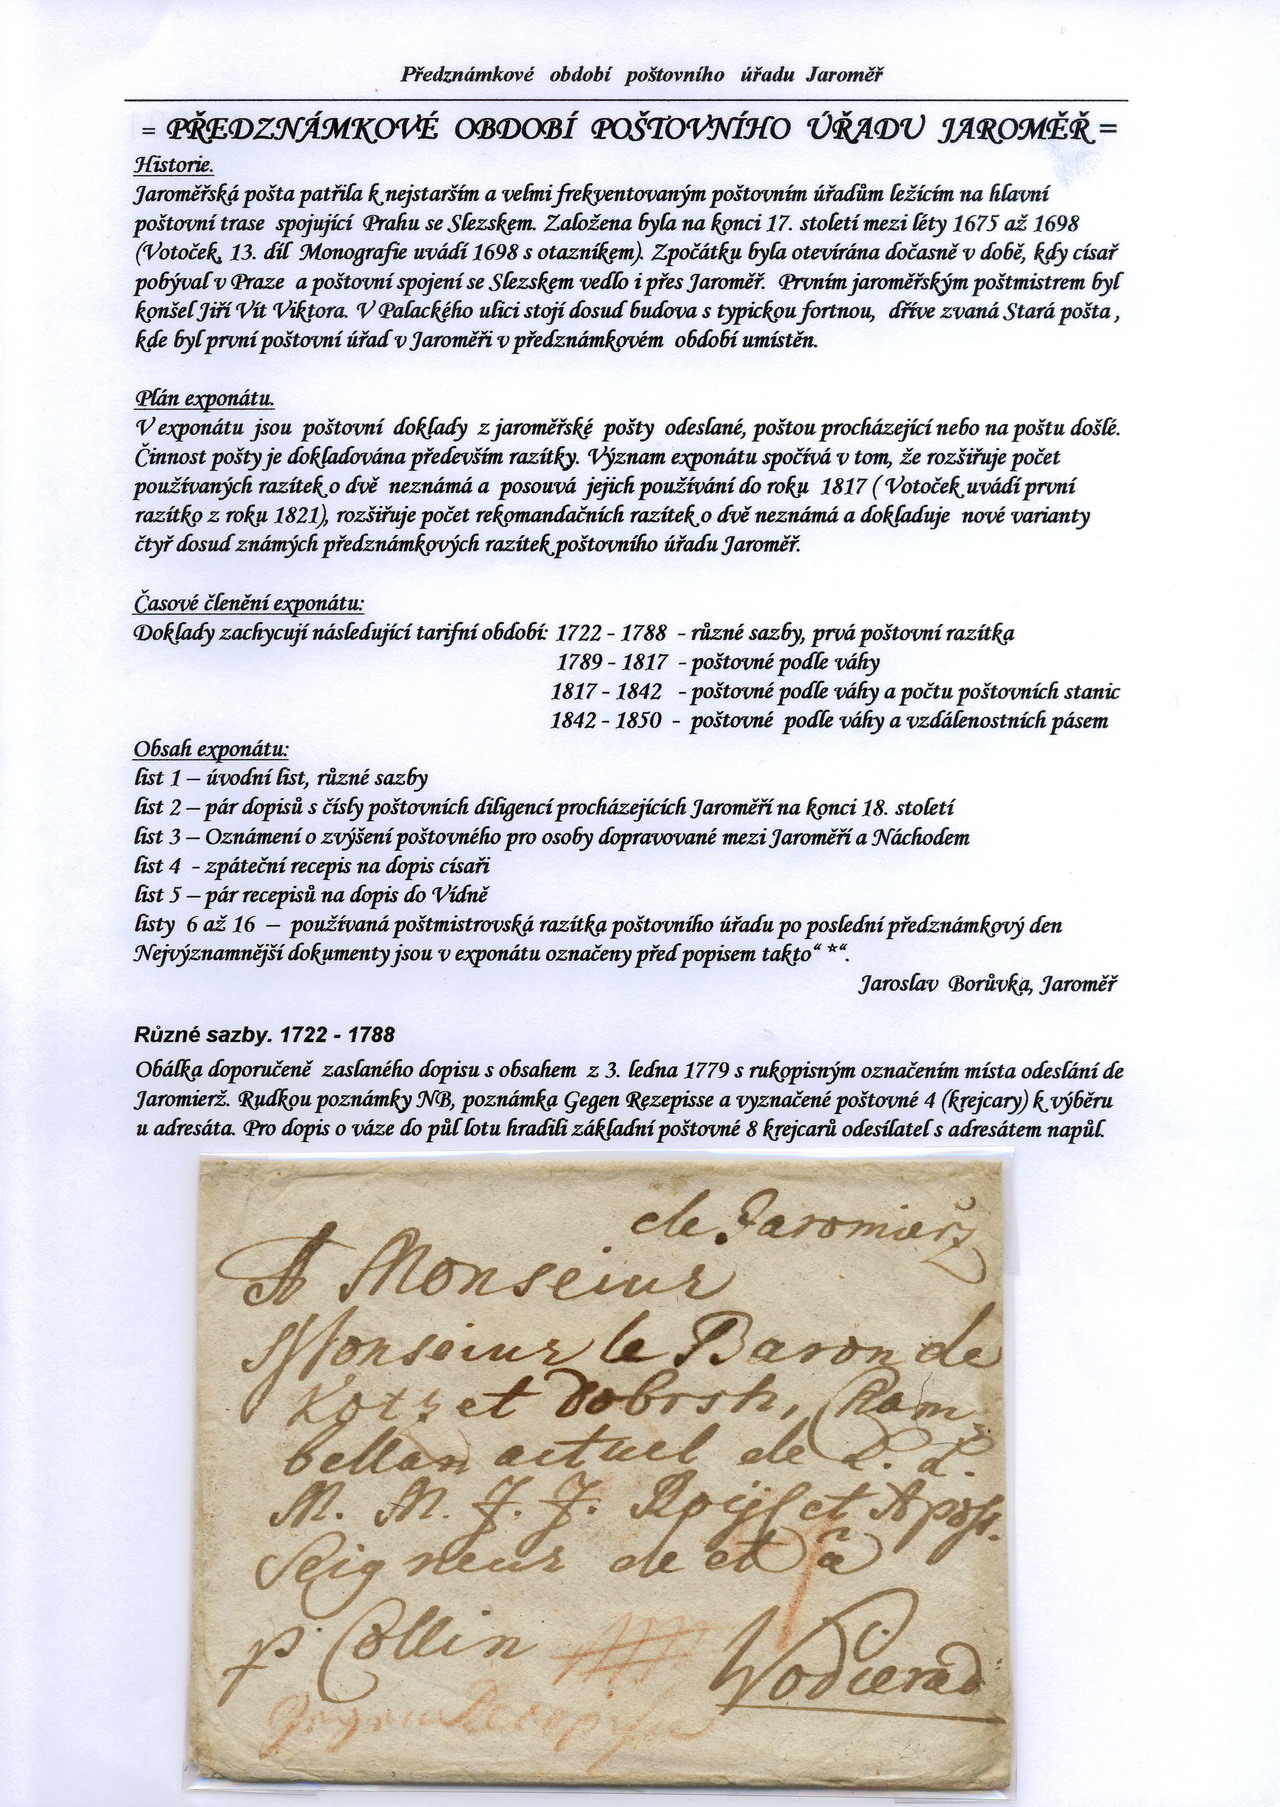 Předznámkové období poštovního úřadu Jaroměř
= PŘEDZNÁMKOVÉ OBDOBÍ POŠTOVNÍHO ÚŘADU JAROMĚŘ =
Historie.
Jaroměřská pošta patřila k nejstarším a velmi frekventovaným poštovním úřadům ležícím na hlavní
poštovní trase spojující Prahu se Slezskem. Založena byla na konci 17. století mezi léty 1675 až 1698
(Votoček, 13. díl Monografie uvádí 1698 s otazníkem). Zpočátku byla otevírána dočasně v době, kdy císař
pobýval v Praze a poštovní spojení se Slezskem vedlo i přes Jaroměř. Prvním jaroměřským poštmistrem byl
konšel Jiří Vít Viktora. V Palackého ulici stojí dosud budova s typickou fortnou, dříve zvaná Stará pošta ,
kde byl první poštovní úřad v Jaroměři v předznámkovém období umístěn.
Plán exponátu.
V exponátu jsou poštovní doklady z jaroměřské pošty odeslané, poštou procházející nebo na poštu došlé.
Činnost pošty je dokladována především razítky. Význam exponátu spočívá v tom, že rozšiřuje počet
používaných razítek o dvě neznámá a posouvá jejich používání do roku 1817 ( Votoček uvádí první
razítko z roku 1821), rozšiřuje počet rekomandačních razítek o dvě neznámá a dokladuje nové varianty
čtyř dosud známých předznámkových razítek poštovního úřadu Jaroměř.
Časové členění exponátu:
Doklady zachycují následující tarifní období: 1722 - 1788 - různé sazby, prvá poštovní razítka
1789 - 1817 - poštovné podle váhy
1817 - 1842 - poštovné podle váhy a počtu poštovních stanic
1842 - 1850 - poštovné podle váhy a vzdálenostních pásem
Obsah exponátu:
list 1 – úvodní list, různé sazby
list 2 – pár dopisů s čísly poštovních diligencí procházejících Jaroměří na konci 18. století
list 3 – Oznámení o zvýšení poštovného pro osoby dopravované mezi Jaroměří a Náchodem
list 4 - zpáteční recepis na dopis císaři
list 5 – pár recepisů na dopis do Vídně
listy 6 až 16 – používaná poštmistrovská razítka poštovního úřadu po poslední předznámkový den
Nejvýznamnější dokumenty jsou v exponátu označeny před popisem takto“ *“.
Jaroslav Borůvka, Jaroměř
Různé sazby. 1722 - 1788
Obálka doporučeně zaslaného dopisu s obsahem z 3. ledna 1779 s rukopisným označením místa odeslání de
Jaromierž. Rudkou poznámky NB, poznámka Gegen Rezepisse a vyznačené poštovné 4 (krejcary) k výběru
u adresáta. Pro dopis o váze do půl lotu hradili základní poštovné 8 krejcarů odesílatel s adresátem napůl.
de Jaromierž
A Monseiur
Monseiur le Baron de
Kotz et Dobrsh, Kam-
bellan actuel de L. L.
M. M. J. J. Roÿl et Apost.
Seigneur de et à
p. Collin
Wodierad